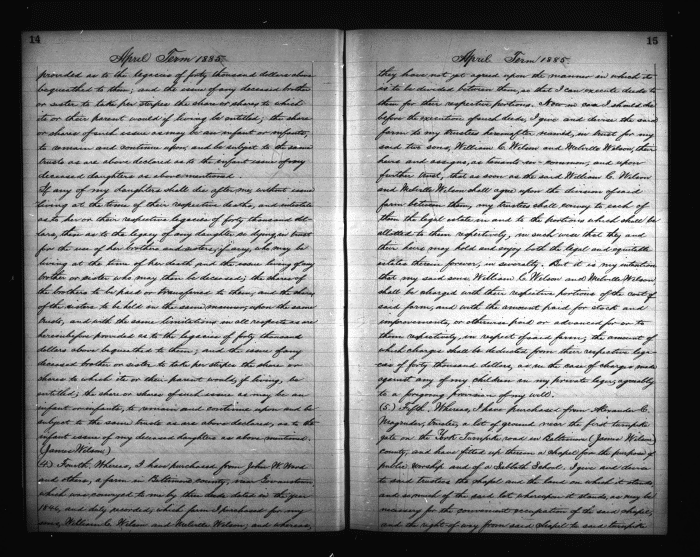 14
April Term 1885
provided as to the legacies of forty thousand dollars above
bequeathed to them; and the issue of any deceased brother
or sister to take per stirpes the share or shares to which
its or their parent would if living be entitled; the share
or shares of such issue as may be an infant or infants,
to remain and continue upon, and be subject to the same
trusts as are above declared as to the infant issue of my
deceased daughters as above mentioned.
If any of my daughters shall die after me, without issue
living at the time of their respective deaths, and intestate
as to her or their respective legacies of forty thousand dol-
lars, then as to the legacy of any daughter so dying in trust
for the use of her brothers and sisters, if any, who may be
living at the time of her death and the issue living of any
brother or sister who may then be deceased; the shares of
the brothers to be paid or transferred to them, and the shares
of the sisters to be held in the same manner, upon the same
trusts, and with the same limitations in all respects as are
hereinbefore provided as to the legacies of forty thousand
dollars above bequeathed to them; and the issue of any
deceased brother or sister to take per stirpes the share or
shares to which its or their parent would, if living, be
entitled; the share or shares of such issue as may be an
infant or infants, to remain and continue upon and be
subject to the same trusts as are above declared, as to the
infant issue of my deceased daughters as above mentioned.
(James Wilson)
(4.) Fourth. Whereas, I have purchased from John W. Wood
and others, a farm in Baltimore county, near Govanstown,
which was conveyed to me by their deeds dated in the year
1846, and duly recorded; which farm I purchased for my
sons, William C. Wilson and Melville Wilson; and whereas,
15
April Term 1885
they have not yet agreed upon the manner in which it
is to be divided between them, so that I can execute deeds to
them for their respective portions. Now in case I should die
before the execution of such deeds, I give and devise the said
farm to my trustees hereinafter named, in trust for my
said two sons, William C. Wilson and Melville Wilson, their
heirs and assigns, as tenants in common; and upon
further trust, that as soon as the said William C. Wilson
and Melville Wilson shall agree upon the division of said
farm between them, my trustees shall convey to each of
them the legal estate in and to the portion which shall be
allotted to them respectively, in such wise that they and
their heirs may hold and enjoy both the legal and equitable
estates therein forever, in severalty. But it is my intention
that my said sons William C. Wilson and Melville Wilson
shall be charged with their respective portions of the cost of
said farm, and with the amount paid for stock and
improvements, or otherwise paid or advanced for or to
them respectively, in respect of said farm; the amount of
which charges shall be deducted from their respective lega-
cies of forty thousand dollars, as in the case of charges made
against any of my children in my private legers, agreeably
to a foregoing provision of my will.
(5.) Fifth. Whereas, I have purchased from Alexander C.
Magruder, trustee, a lot of ground near the first turnpike
gate on the York Turnpike road in Baltimore (James Wilson)
county, and have fitted up thereon a chapel for the purposes of
public worship and of a Sabbath School. I give and devise
to said trustees the chapel and the land on which it stands
and so much of the said lot whereupon it stands, as may be
necessary for the convenient occupation of the said chapel,
and the right of way from said chapel to said turnpike